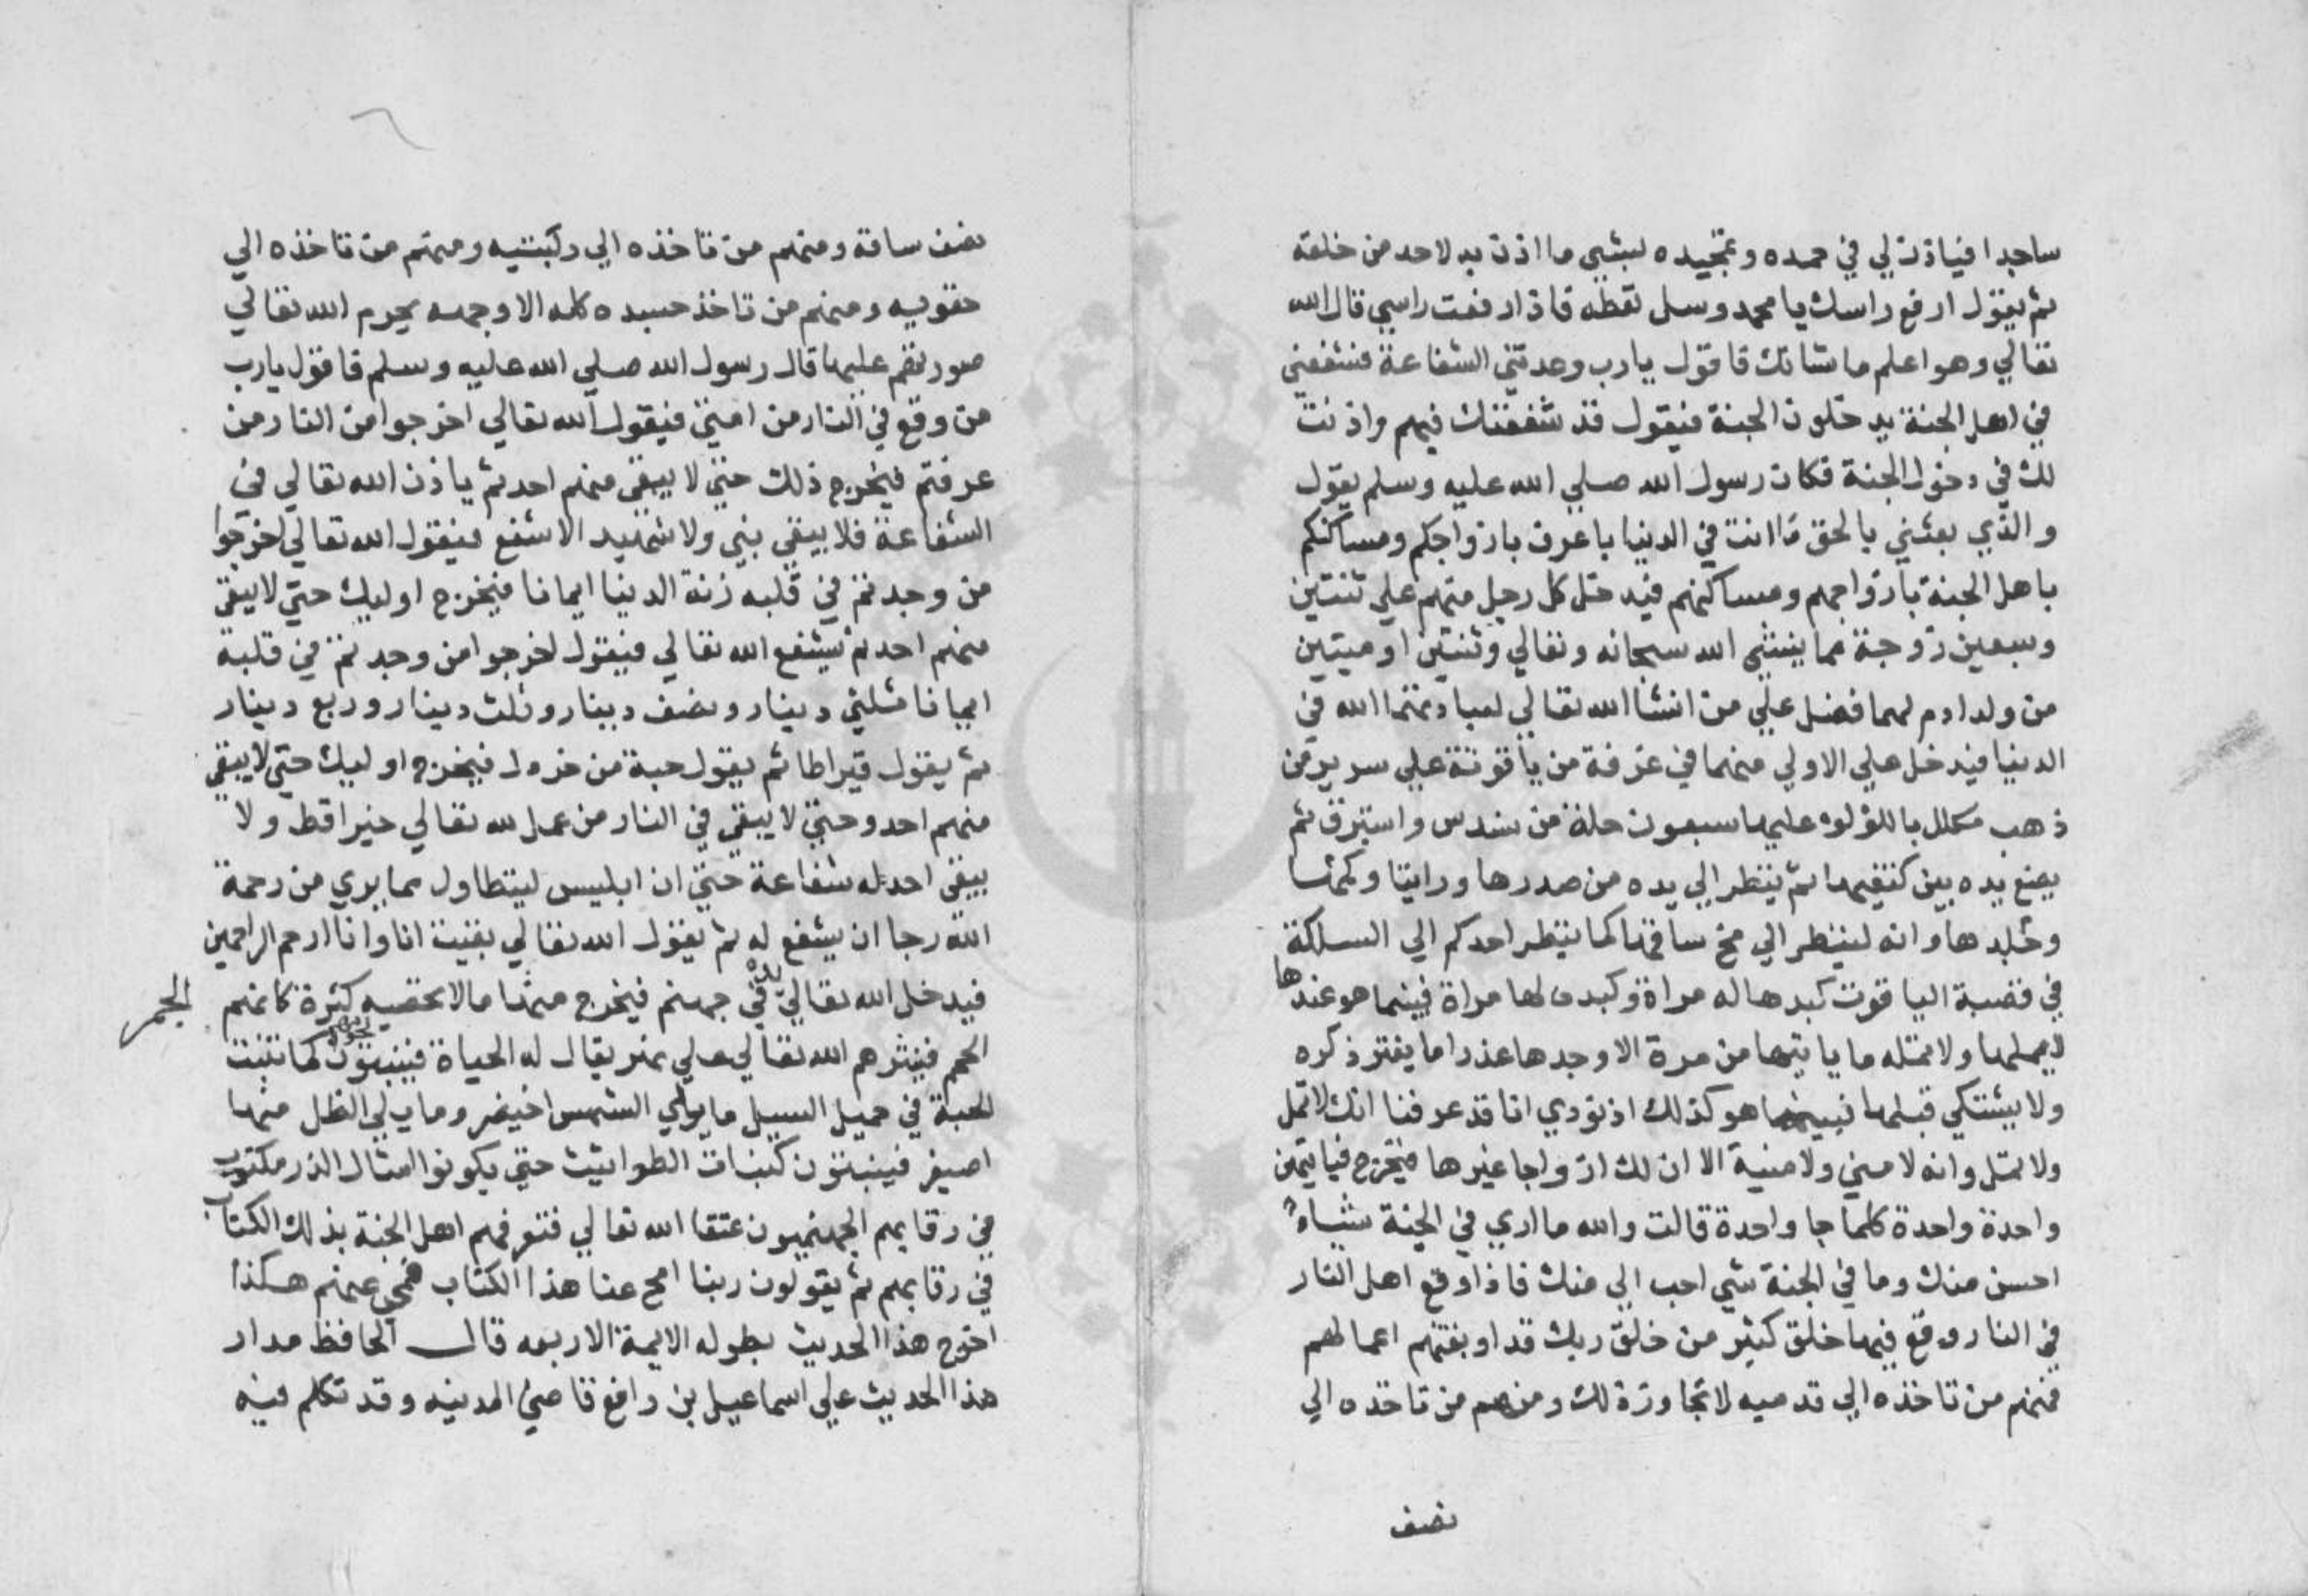 ساجدا فياذن لي في حمده وتمجيده لبشي ما اذن به لاحد من خلقه
ثم يقول ارفع راسك يا محمد وسل تعطه فاذا رفعت راسي قال الله
تعالي وهو اعلم ما شانك فاقول يارب وعدتني الشفاعة فشفعني
في اهل الجنة يدخلون الجنة فيقول قد شفعتك فيهم واذنت
لك في دخول الجنة فكان رسول الله صلي الله عليه وسلم يقول
والذي بعثني بالحق ما انت في الدنيا باعرف بازواجكم ومساكنكم
باهل الجنة بازواجهم ومساكنهم فيدخل كل رجل منهم علي ثنتين
وسبعين زوجة مما ينشي الله سبحانه وتعالي وثنتين اوميتين
من ولد ادم لهما فضل علي من انشا الله تعالي لعبادتهما الله في
الدنيا فيدخل علي الاولي منهما في غرفة من ياقوتة علي سرير من
ذهب مكلل باللؤلوء عليها سبعون حلة من سندس واستبرق ثم
يضع يده بين كتفيها ثم ينظر الي يده من صدرها وراثيا ولحمها
وجلدها وانه لينظر الي مخ ساقها كما ينظر احدكم الي السلكة
في قصبة الياقوت كبدها له مراة وكبده لها مراة فبينما هو عندها
لايملها ولا تمله ما ياتيها من مرة الا وجدها عذرا ما يفتر ذكره
ولا يشتكي قبلها فبينما هو كذلك اذ نودي انا قد عرفنا انك لا تمل
ولا تمل وانه لا مني ولا منية الا ان لك ازواجا غيرها فيخرج فياتيهن
واحدة واحدة كلما جا واحدة قالت والله ما اري في الجنة شياء
احسن منك وما في الجنة شي احب الي منك فاذا وقع اهل النار
في النار وقع فيها خلق كثير من خلق ربك قد اوبقتهم اعمالهم
فمنهم من تاخذه الي قدميه لا تجاوز ذلك ومنهم من تاخذه الي
نصف
نصف ساقه ومنهم من تاخذه الي ركبتيه ومنهم من تاخذه الي
حقويه ومنهم من تاخذ جسده كله الا وجهه يحرم الله تعالي
صورتهم عليها قال رسول الله صلي الله عليه وسلم فاقول يارب
من وقع في النار من امتي فيقول الله تعالي اخرجوا من النار من
عرفتم فيخرج ذلك حتي لا يبقي منهم احد ثم ياذن الله تعالي في
الشفاعة فلا يبقي نبي ولا شهيد الا شفع فيقول الله تعالي اخرجوا
من وجدتم في قلبه زنة الدنيا ايمانا فيخرج اوليك حتي لا يبقي
منهم احد ثم يشفع الله تعالي فيقول اخرجوا من وجدتم في قلبه
ايمانا مثلثي دينار ونصف دينار وثلث دينار وربع دينار
ثم يقول قيراطا ثم يقول حبة من خردل فيخرج اوليك حتي لا يبقي
منهم احد وحتي لا يبقي في النار من عمل لله تعالي خيرا قط ولا
يبقي احد له شفاعة حتي ان ابليس ليتطاول مما يري من رحمة
الله رجا ان يشفع له ثم يقول الله تعالي بقيت انا وانا ارحم الراحمين
فيدخل الله تعالي يده في جهنم فيخرج منها مالا يحصيه كثرة كانهم
الحمم فينثرهم الله تعالي علي نهر يقال له الحياة فينبتون كما تنبت
الحبة في حميل السيل ما يلي الشمس اخيضر وما يلي الظل منها
اصيفر فينبتون كنبات الطواثيث حتي يكونوا امثال الذر مكتوب
في رقابهم الجهنميون عتقا الله تعالي فتعرفهم اهل الجنة بذلك الكتاب
في رقابهم ثم يقولون ربنا امح عنا هذا الكتاب فمحي عنهم هكذا
اخرج هذا الحديث بطوله الايمة الاربعه قال الحافظ مدار
هذا الحديث علي اسماعيل بن رافع قاضي المدينه وقد تكلم فيه